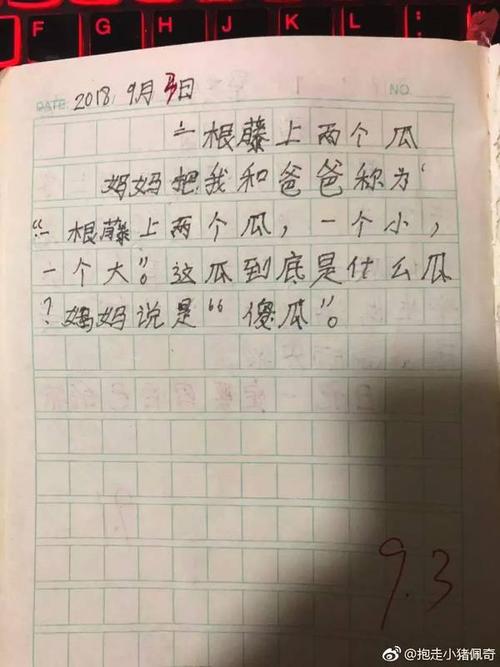 F G H J K
DATE 2018. 9月3日 NO.
一根藤上两个瓜
妈妈把我和爸爸称为“
“一根藤上两个瓜，一个小，
一个大”。这瓜到底是什么瓜
？妈妈说是“傻瓜”。
9.3
@抱走小猪佩奇